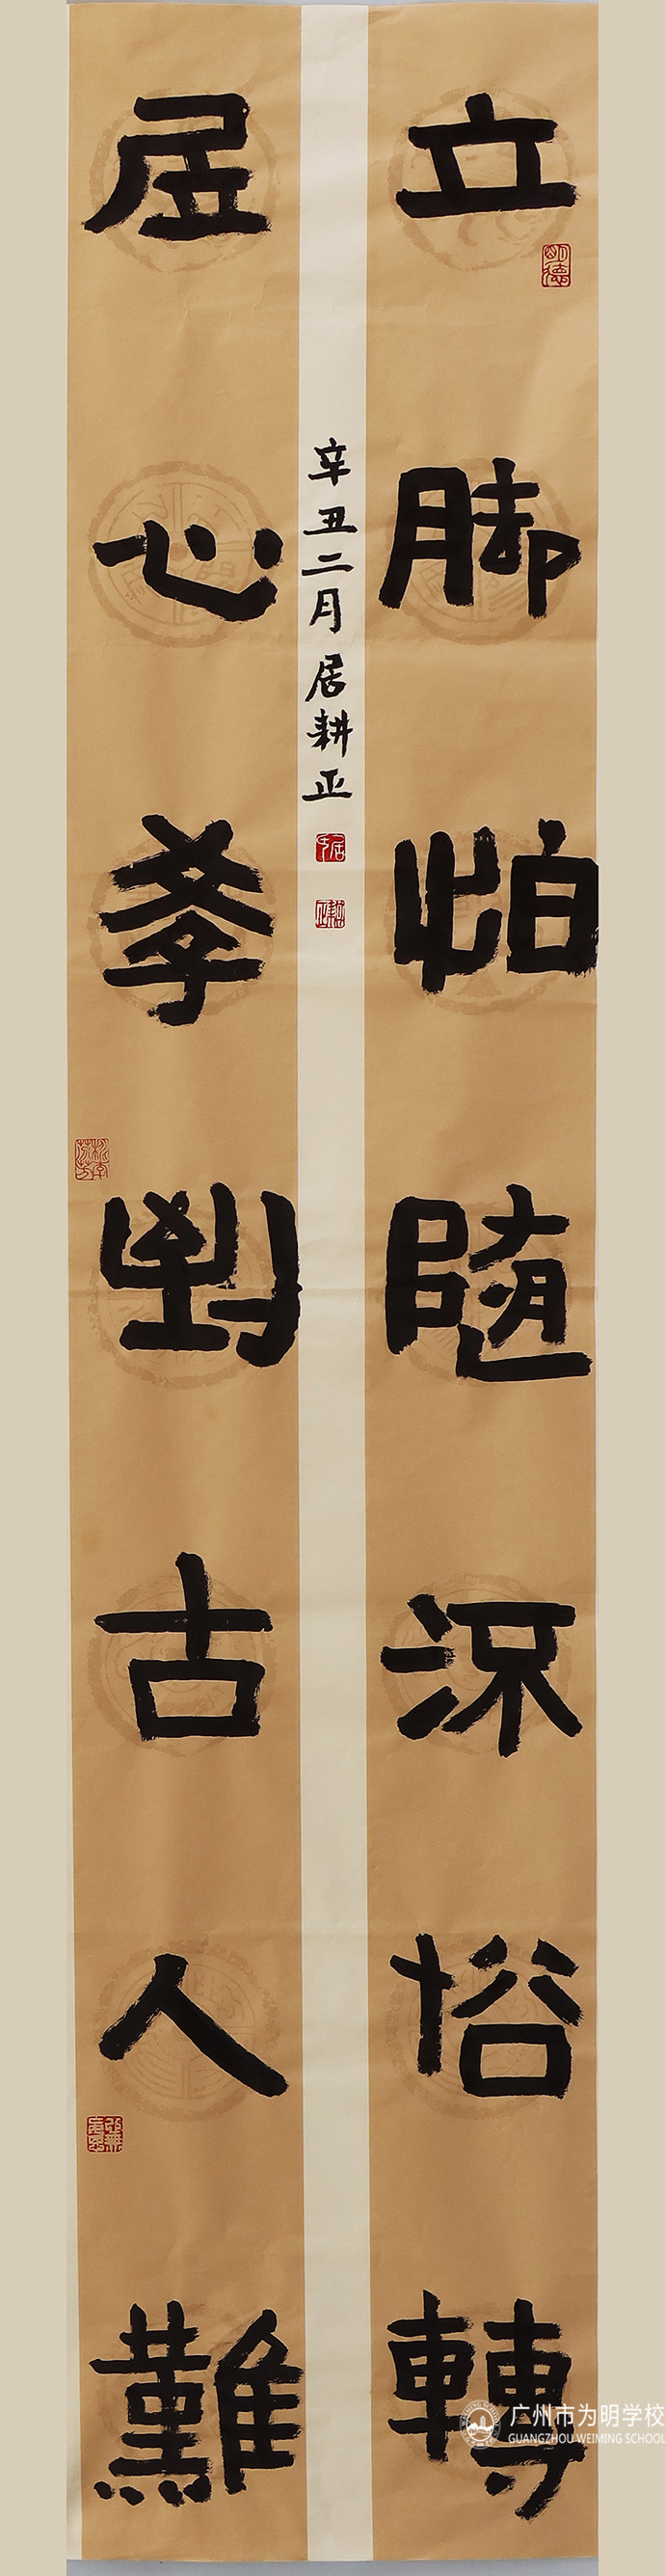 立脚怕随流俗轉
明德
居心斈到古人難
辛丑二月居耕正
耕正
广州市为明学校
GUANGZHOU WEIMING SCHOOL